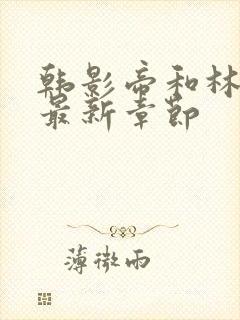 韩影帝和林
最新章节
薄微雨